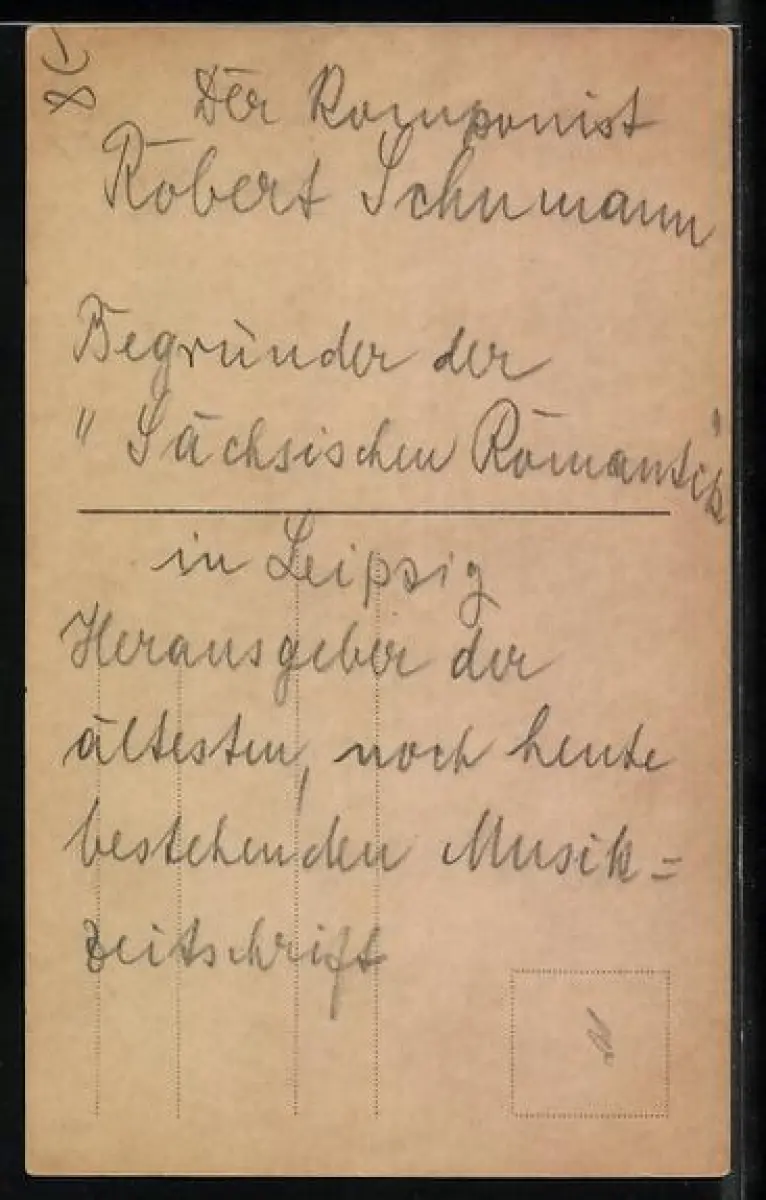 Der Komponist
Robert Schumann
Begründer der
"Sächsischen Romantik"
in Leipzig
Herausgeber der
ältesten, noch heute
bestehenden Musik=
zeitschrift